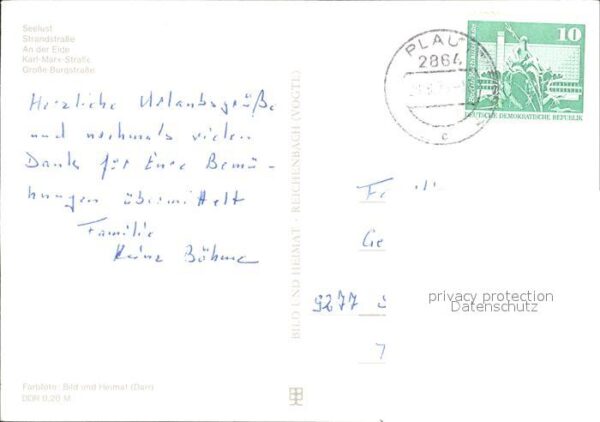 Seelust
Strandstraße
An der Elde
Karl-Marx-Straße
Große Burgstraße
Herzliche Urlaubsgrüße
und nochmals vielen
Dank für Eure Bemü-
hungen übermittelt
Familie
Heinz Böhme
BILD UND HEIMAT · REICHENBACH (VOGTL)
PLAU
2864
c
10
DEUTSCHE DEMOKRATISCHE REPUBLIK
Fa
Ge
9277
7
privacy protection
Datenschutz
Farbfoto: Bild und Heimat (Darr)
DDR 0,20 M